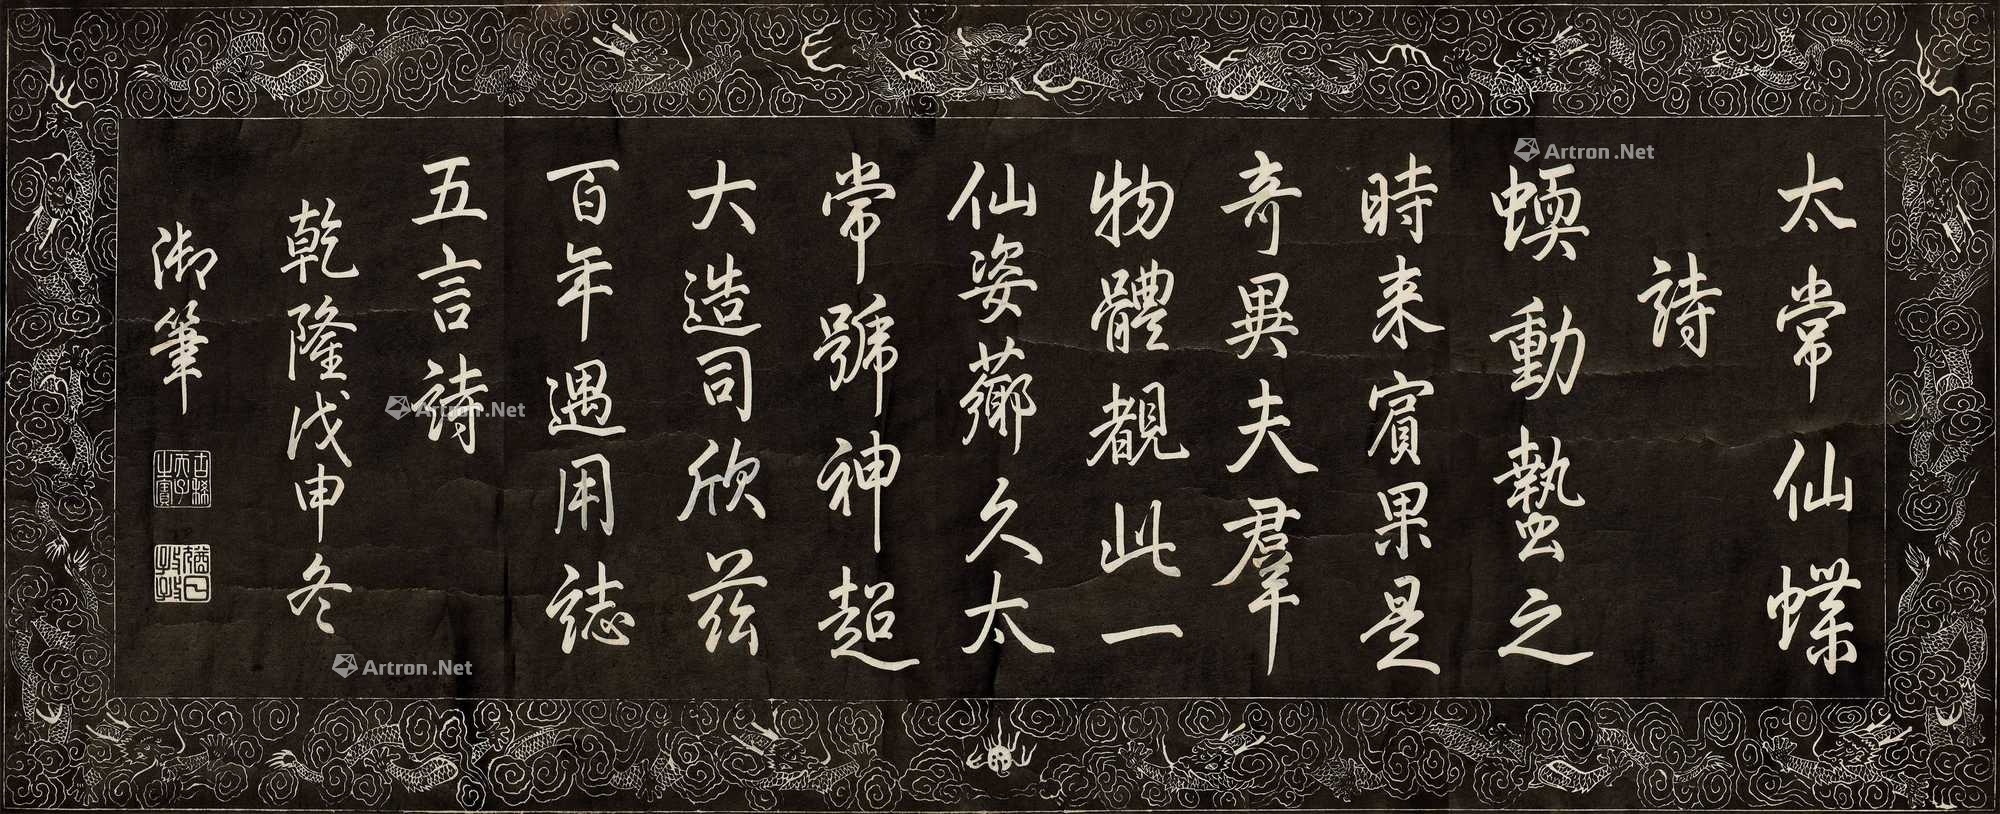 太常仙蝶
詩
蝡動蟄之
時来賓果是
奇異夫羣
物體覩此一
仙姿薌久太
常號神超
大造司欣茲
百年遇用誌
五言詩
乾隆戊申冬
御筆
古稀天子之寶
猶日孜孜
Artron.Net
Artron.Net
Artron.Net